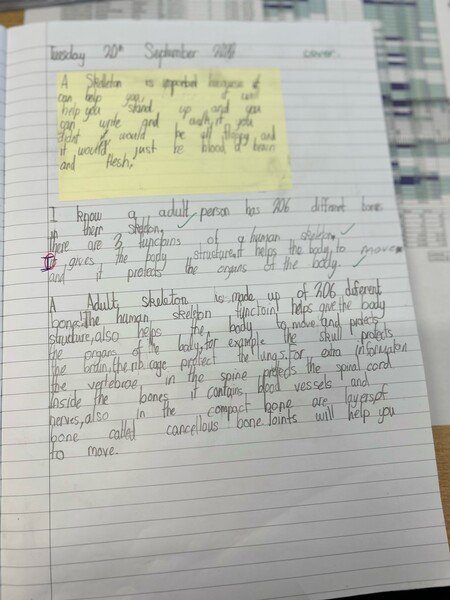 Tuesday 20th September cover.
A Skeleton is important because it
can help you, it will
help you stand up and you
can write and walk, it you
didnt it would be all floppy and
it would just be blood, a brain
and flesh.
I know a adult person has 206 different bones
in their skeleton.
there are 3 functions of a human skeleton.
It gives the body structure, it helps the body to move
and it protects the organs of the body.
A Adult skeleton is made up of 206 different
bones. The human skeleton functoin helps give the body
structure, also helps the body to move and protects
the organs of the body, for example the skull protects
the brain, the rib cage protect the lungs. for extra information
the vertebrae in the spine protects the spiral cord.
Inside the bones it contains blood vessels and
nerves, also in the compact bone are layers of
bone called cancellous bone. Joints will help you
to move.